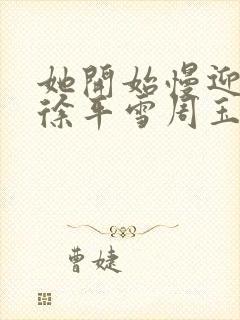 她開始慢迎
徐平雪周玉
曹婕